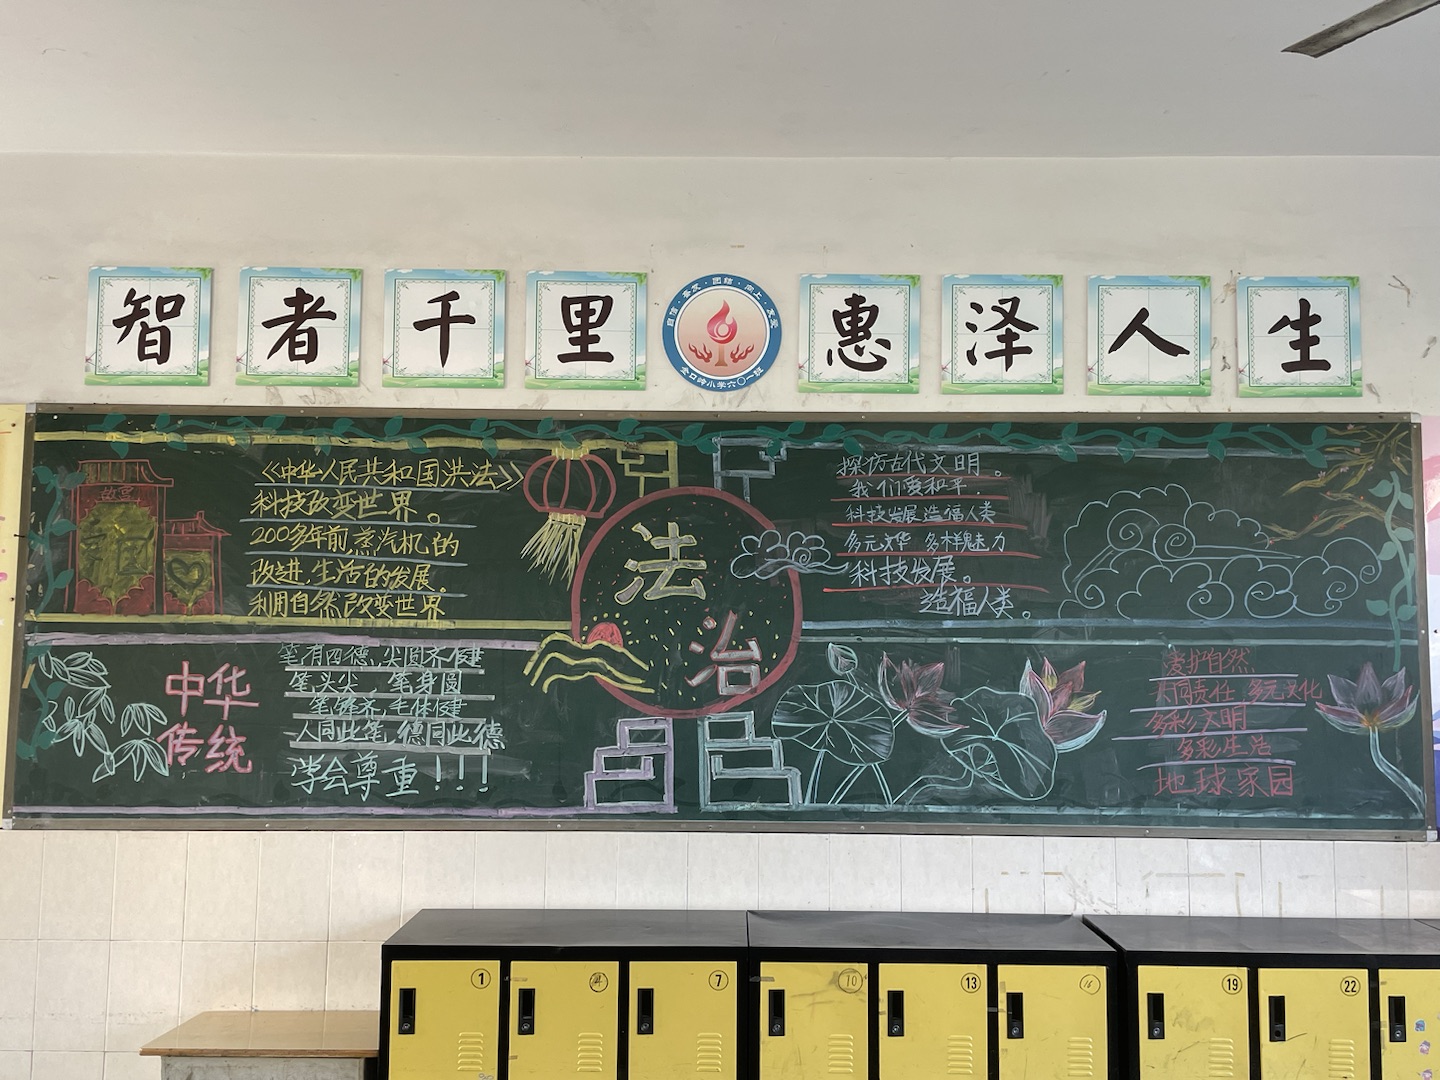 智者千里
惠泽人生
自信·奋发·团结·向上·友爱
金口岭小学六〇一班
故宫
《中华人民共和国洪法》
科技改变世界。
200多年前蒸汽机的
改进,生活的发展。
利用自然改变世界
法
治
探仿古代文明。
我们要和平.
科技发展造福人类
多元文华 多样魅力
科技发展。
造福人类。
中华
传统
笔有四德,尖圆齐健
笔头尖,笔身圆
笔锋齐,毛体健
人同此笔,德同此德
学会尊重!!!
爱护自然
共同责任 多元文化
多彩文明
多彩生活
地球家园
1
7
10
13
16
19
22